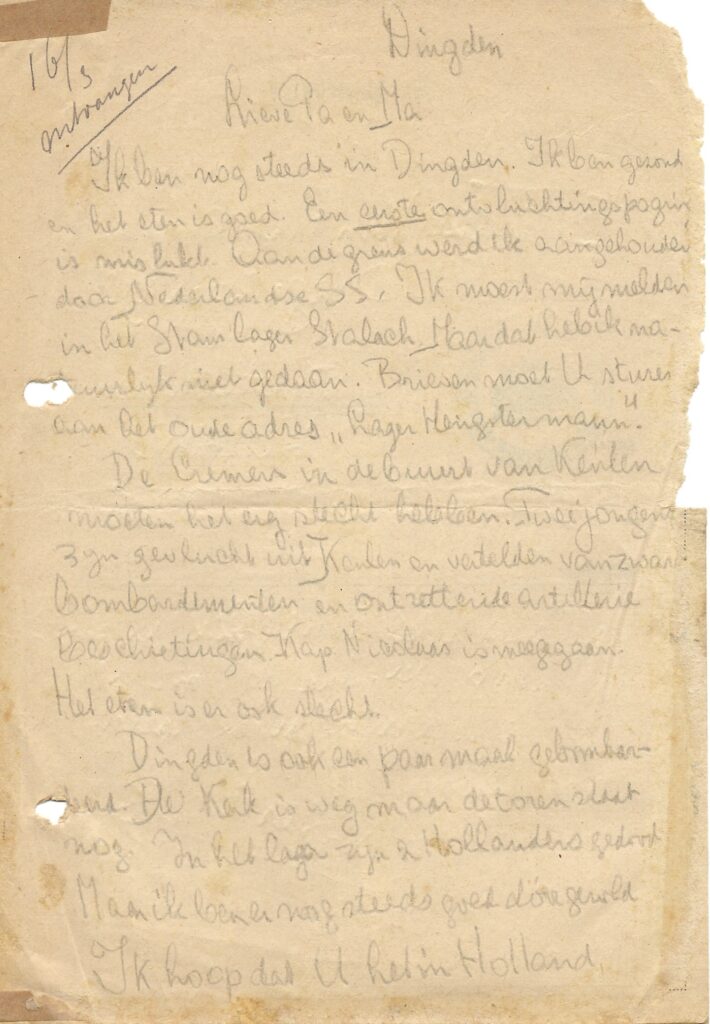 Dingden
16/3
ontvangen
Lieve Pa en Ma
Ik ben nog steeds in Dingden. Ik ben gezond
en het eten is goed. Een eerste ontvluchtingspogin
is mislukt. Aan de grens werd ik aangehouden
door Nederlandse SS. Ik moest mij melden
in het Stamlager Stalach. Maar dat heb ik na-
tuurlijk niet gedaan. Brieven moet U sturen
aan het oude adres „Lager Hengstermann".
De Cremers in de buurt van Keulen
moeten het erg slecht hebben. Twee jongens
zijn gevlucht uit Keulen en vertelden van zwar
bombardementen en ontzettende artillerie
beschietingen. Kap. Nicolaas is meegegaan.
Het eten is er ook slecht.
Dingden is ook een paar maal gebombar-
deerd. De Kerk is weg maar de toren staat
nog. In het lager zijn 2 Hollanders gedood
Maar ik ben er nog steeds goed
Ik hoop dat U het in Holland